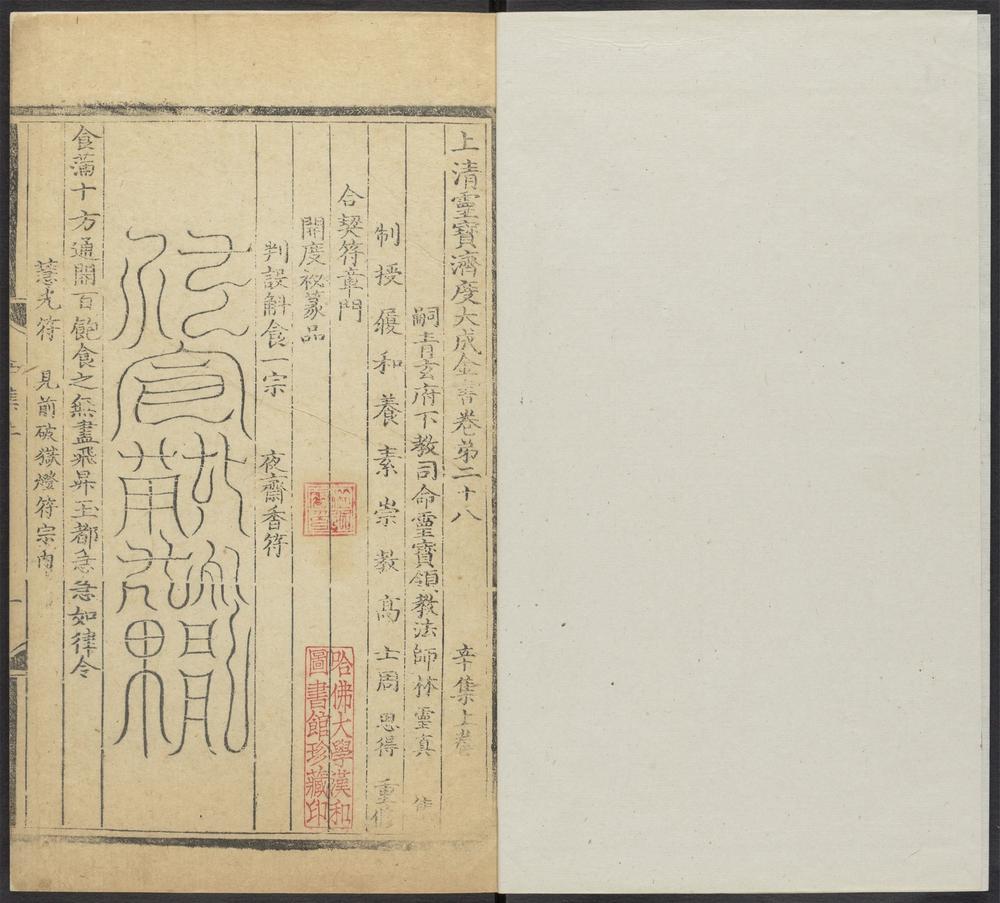 上清靈寶濟度大成金書卷第二十八 辛集上卷
嗣青玄府下教司命靈寶領教法師林靈真
制授履和養素崇教高士周思得重修
合契符章門
開度祕篆品
判設斛食一宗 夜齋香符
食滿十方通開百範食之無盡飛昇玉都急急如律令
慧光符 見前破獄燈符宗內
哈佛大學漢和
圖書館珍藏印